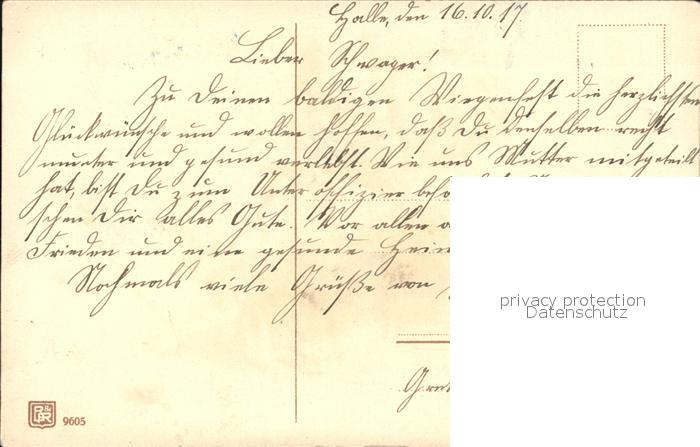 Halle, den 16.10.17
Lieber Schwager!
Zu Deinem baldigen Wiegenfest die herzlichsten
Glückwünsche und wollen hoffen, daß Du denselben recht
munter und gesund verlebst. Wie uns Mutter mitgeteilt
hat, bist Du zum Unteroffizier
schen Dir alles Gute. Vor allen
Frieden und eine gesunde
Nochmals viele Grüße von
privacy protection
Datenschutz
9605